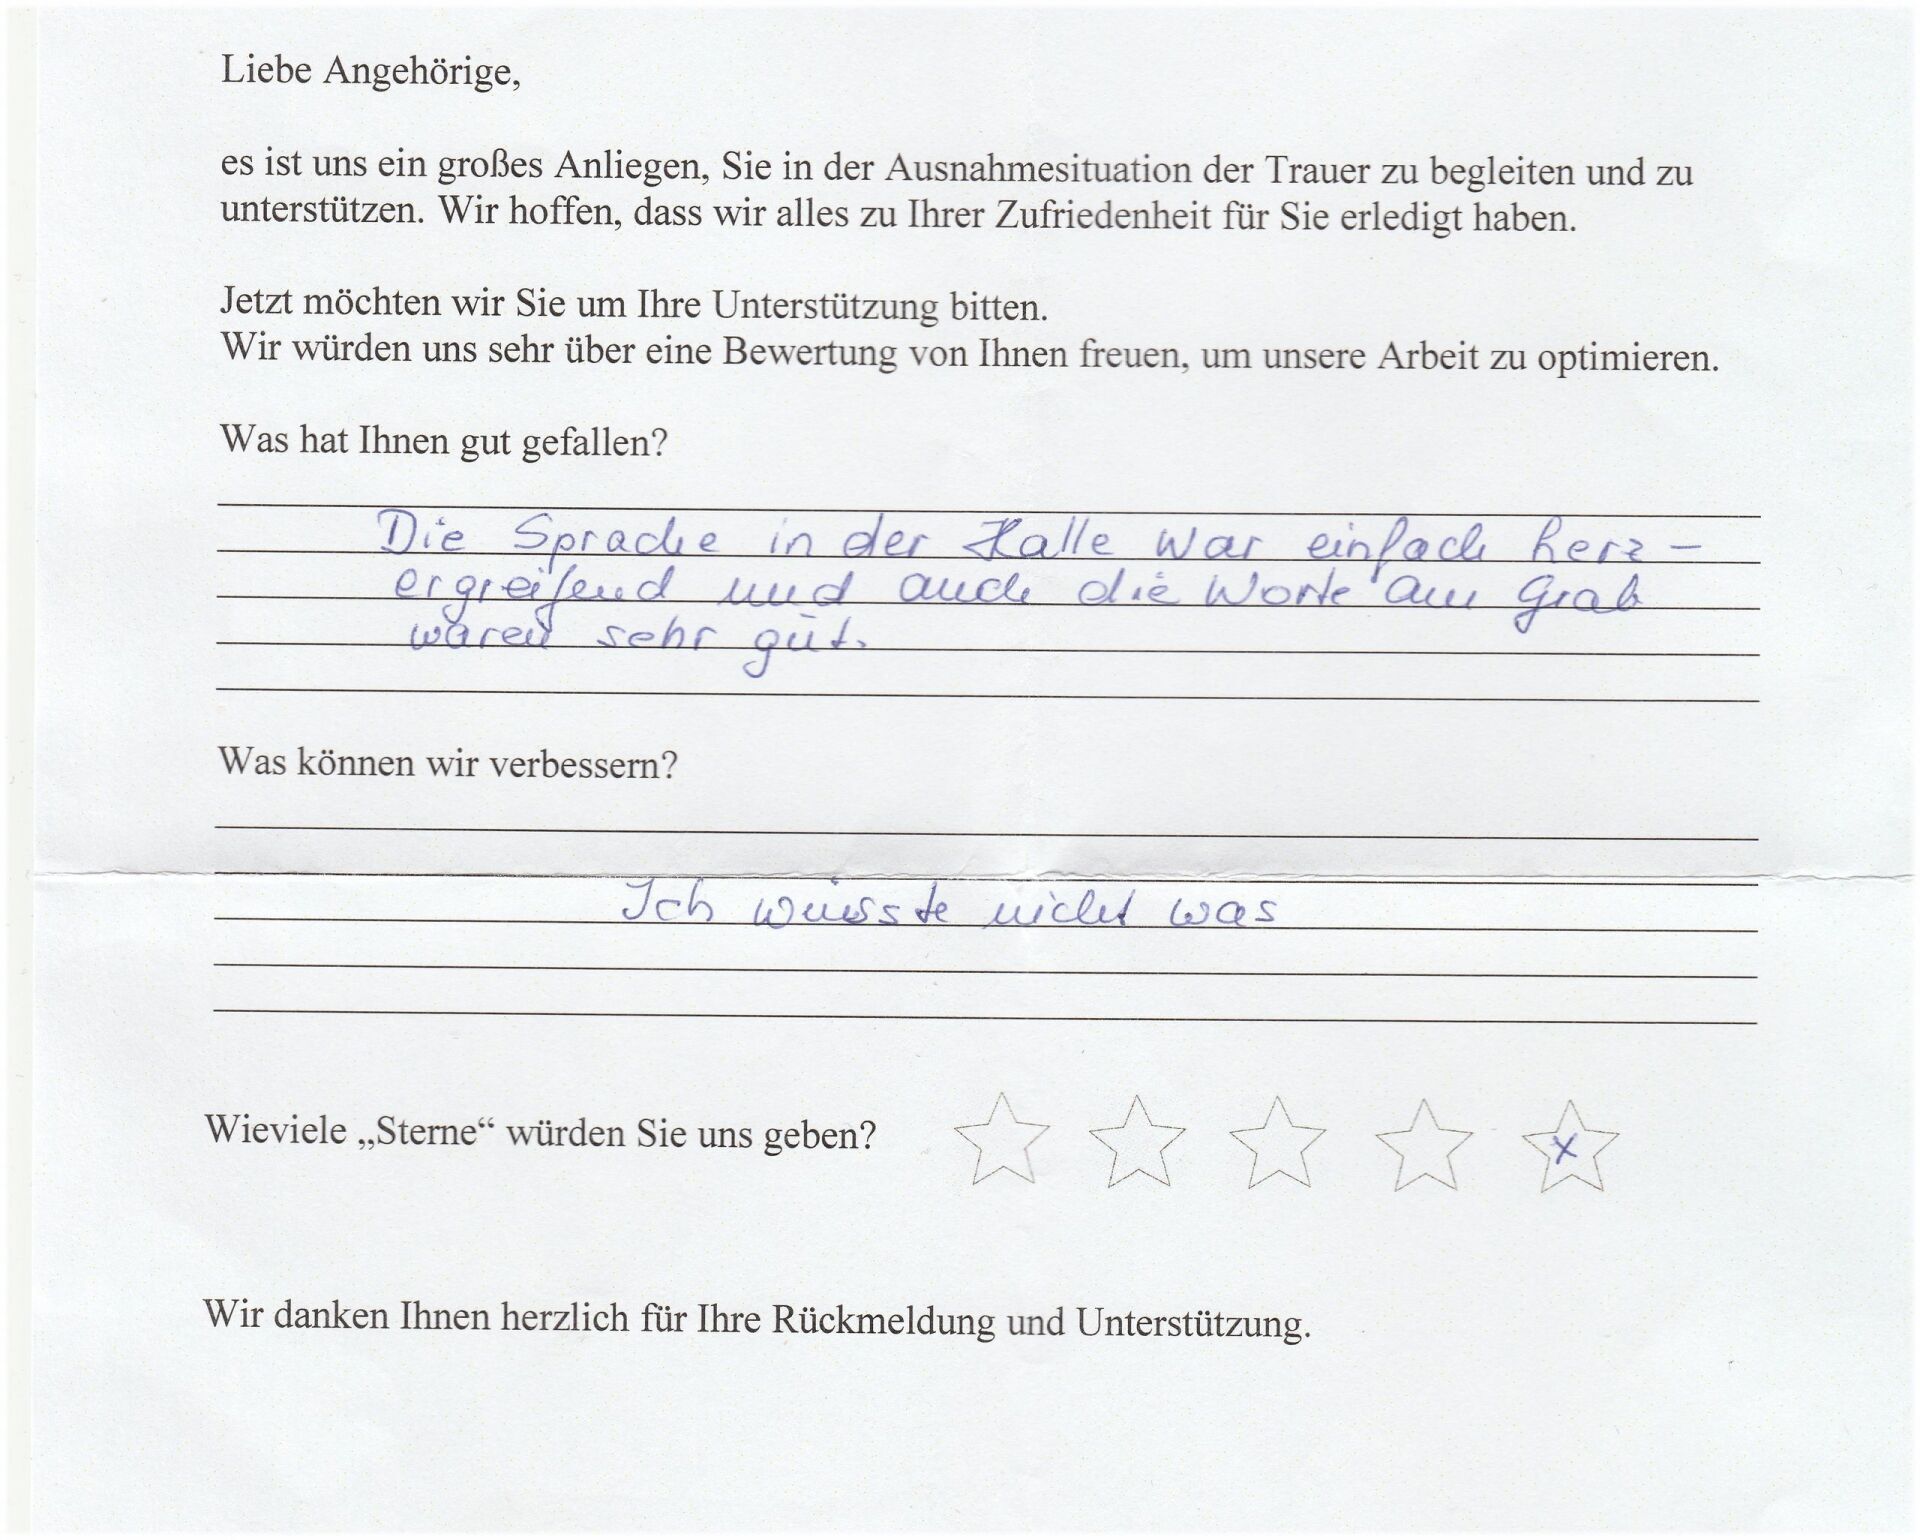 Liebe Angehörige,
es ist uns ein großes Anliegen, Sie in der Ausnahmesituation der Trauer zu begleiten und zu
unterstützen. Wir hoffen, dass wir alles zu Ihrer Zufriedenheit für Sie erledigt haben.
Jetzt möchten wir Sie um Ihre Unterstützung bitten.
Wir würden uns sehr über eine Bewertung von Ihnen freuen, um unsere Arbeit zu optimieren.
Was hat Ihnen gut gefallen?
Die Sprache in der Halle war einfach herz-
ergreifend und auch die Worte am Grab
waren sehr gut.
Was können wir verbessern?
Ich wüsste nicht was
Wieviele „Sterne“ würden Sie uns geben? x
Wir danken Ihnen herzlich für Ihre Rückmeldung und Unterstützung.